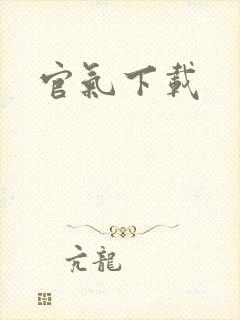 官氣下載
亢龍